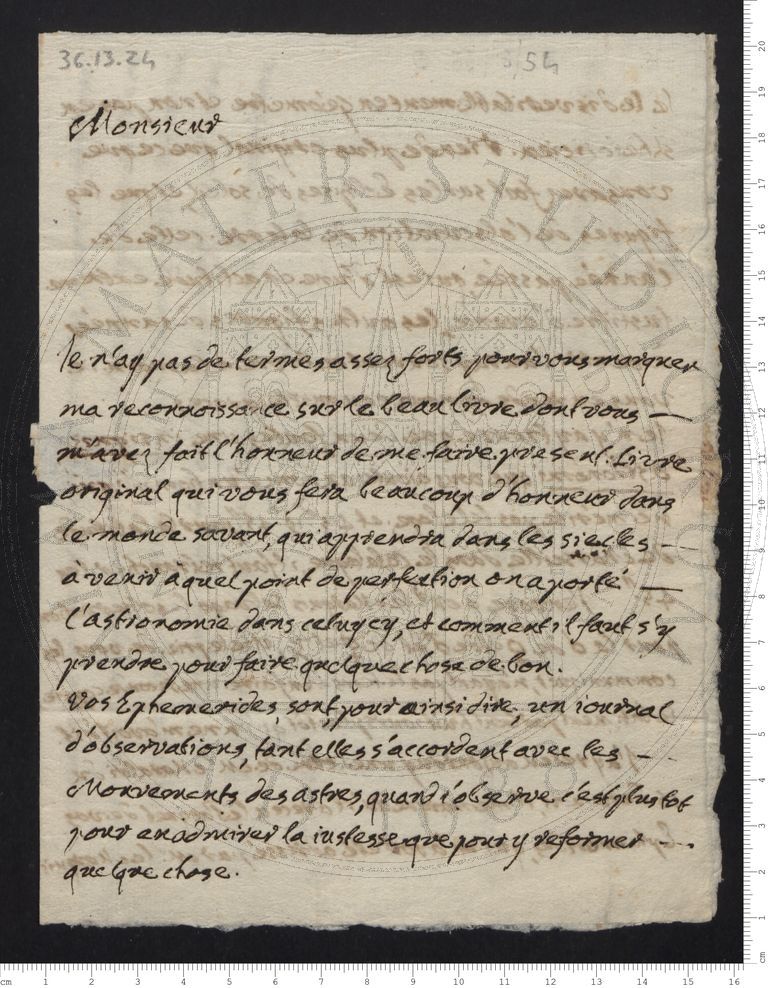 36.13.24
54
Monsieur
Je n'ay pas de termes assez forts pour vous marquer
ma reconnoissance sur le beau livre dont vous —
m'avez fait l'honneur de me faire present. Livre
original qui vous fera beaucoup d'honneur dans
le monde savant, qui apprendra dans les siecles —
à venir à quel point de perfection on a porté —
l'astronomie dans celuy cy, et comment il faut s'y
prendre pour faire quelque chose de bon.
Vos Ephemerides, sont, pour ainsi dire, un iournal
d'observations, tant elles s'accordent avec les —
Mouvements des astres, quand i'observe c'est plus tot
pour en admirer la iustesse que pour y reformer —
quelque chose.